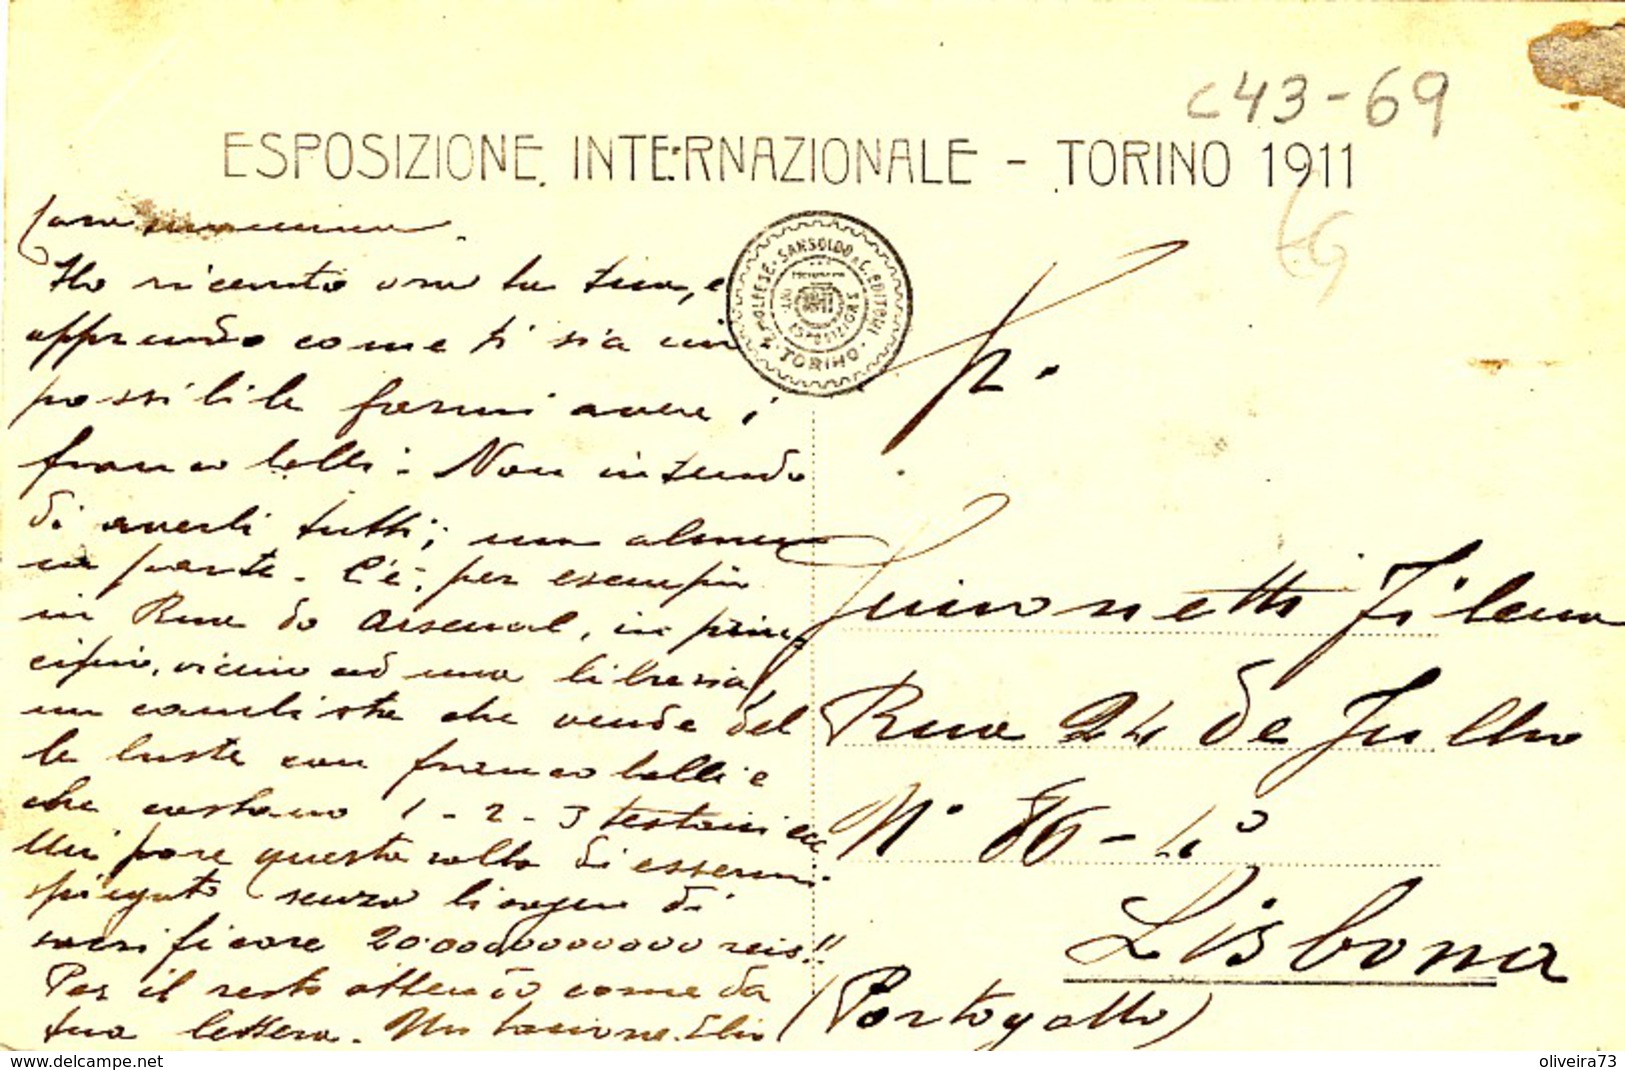 c43-69
ESPOSIZIONE INTERNAZIONALE - TORINO 1911
69
Cara mammina.
Ho ricevuto ora la tua, e
apprendo come ti sia im
possibile farmi avere i
francobolli. Non intendo
di averli tutti; ma almeno
in parte. C'è, per esempio
in Rua do Arsenal, in prin-
cipio, vicino ad una libreria,
un cambista che vende del
le buste con francobolli e
che costano 1-2-3 testoni ecc
Mi pare questa volta di essermi
spiegato senza bisogno di
sacrificare 20000000000000 reis!!
Per il resto attendo come da
tua lettera. Un bacione. Elio
NAPOLEONE SANSOLDO & C. EDITORI
TORINO
INT. ESPOSIZIONI
Simonetti Filena
Rua 24 de Julho
N. 86-4º
Lisbona
(Portogallo)
www.delcampe.net
oliveira73